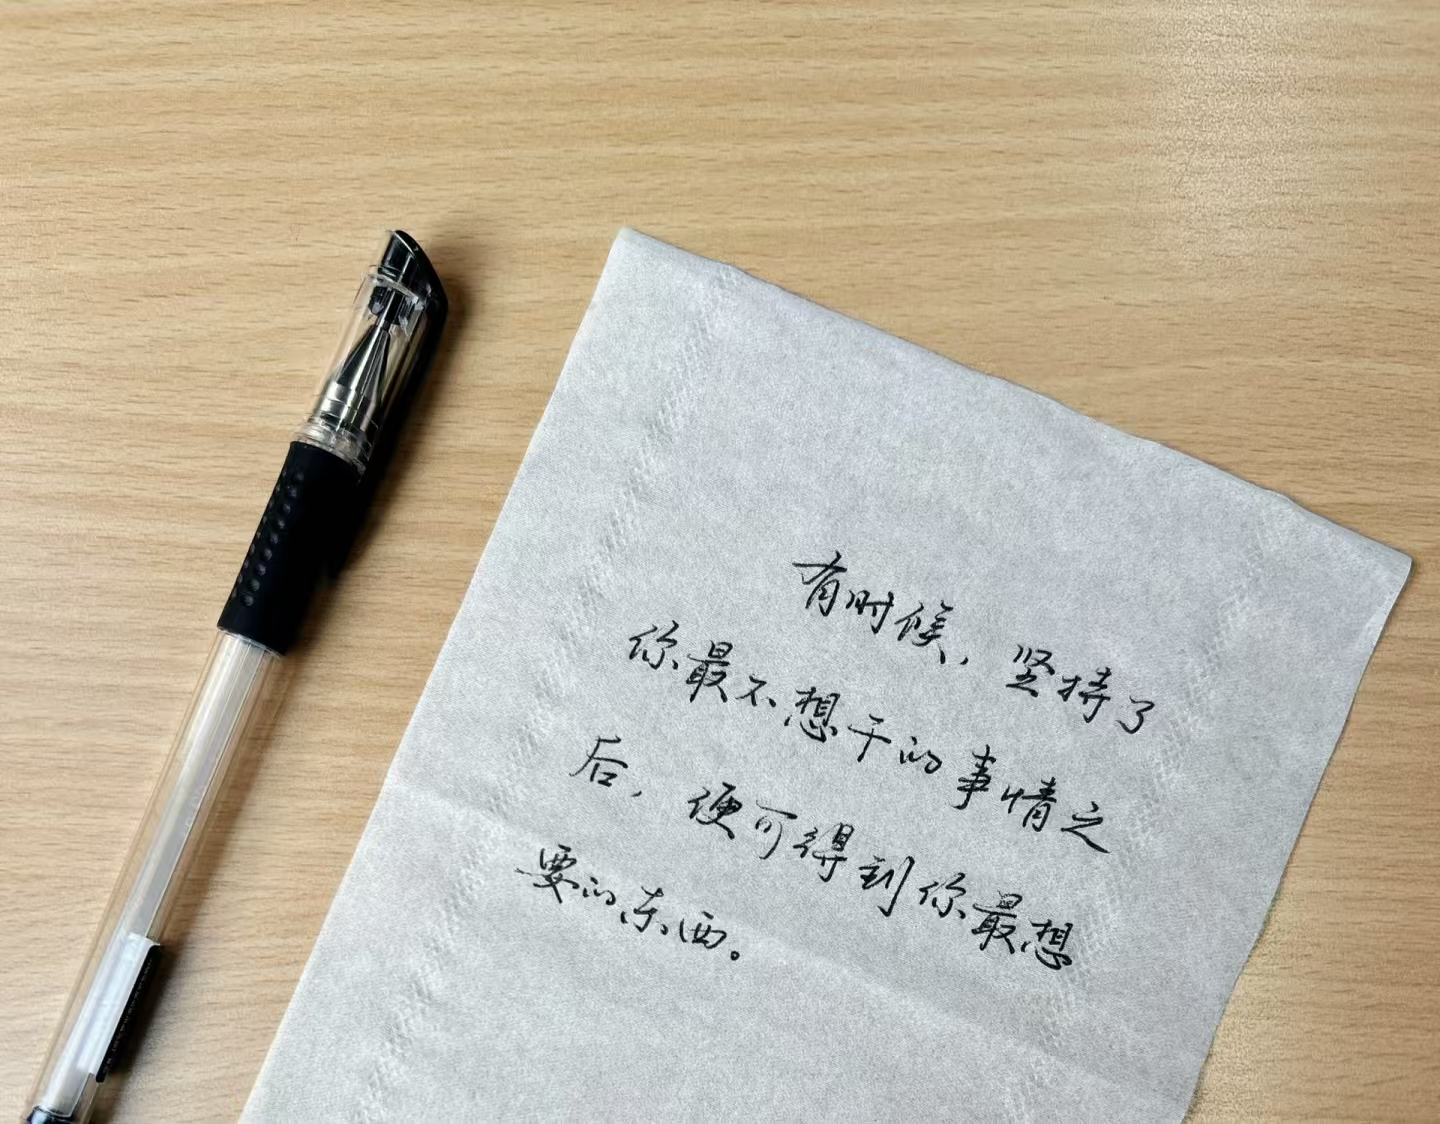 有时候，坚持了
你最不想干的事情之
后，便可得到你最想
要的东西。